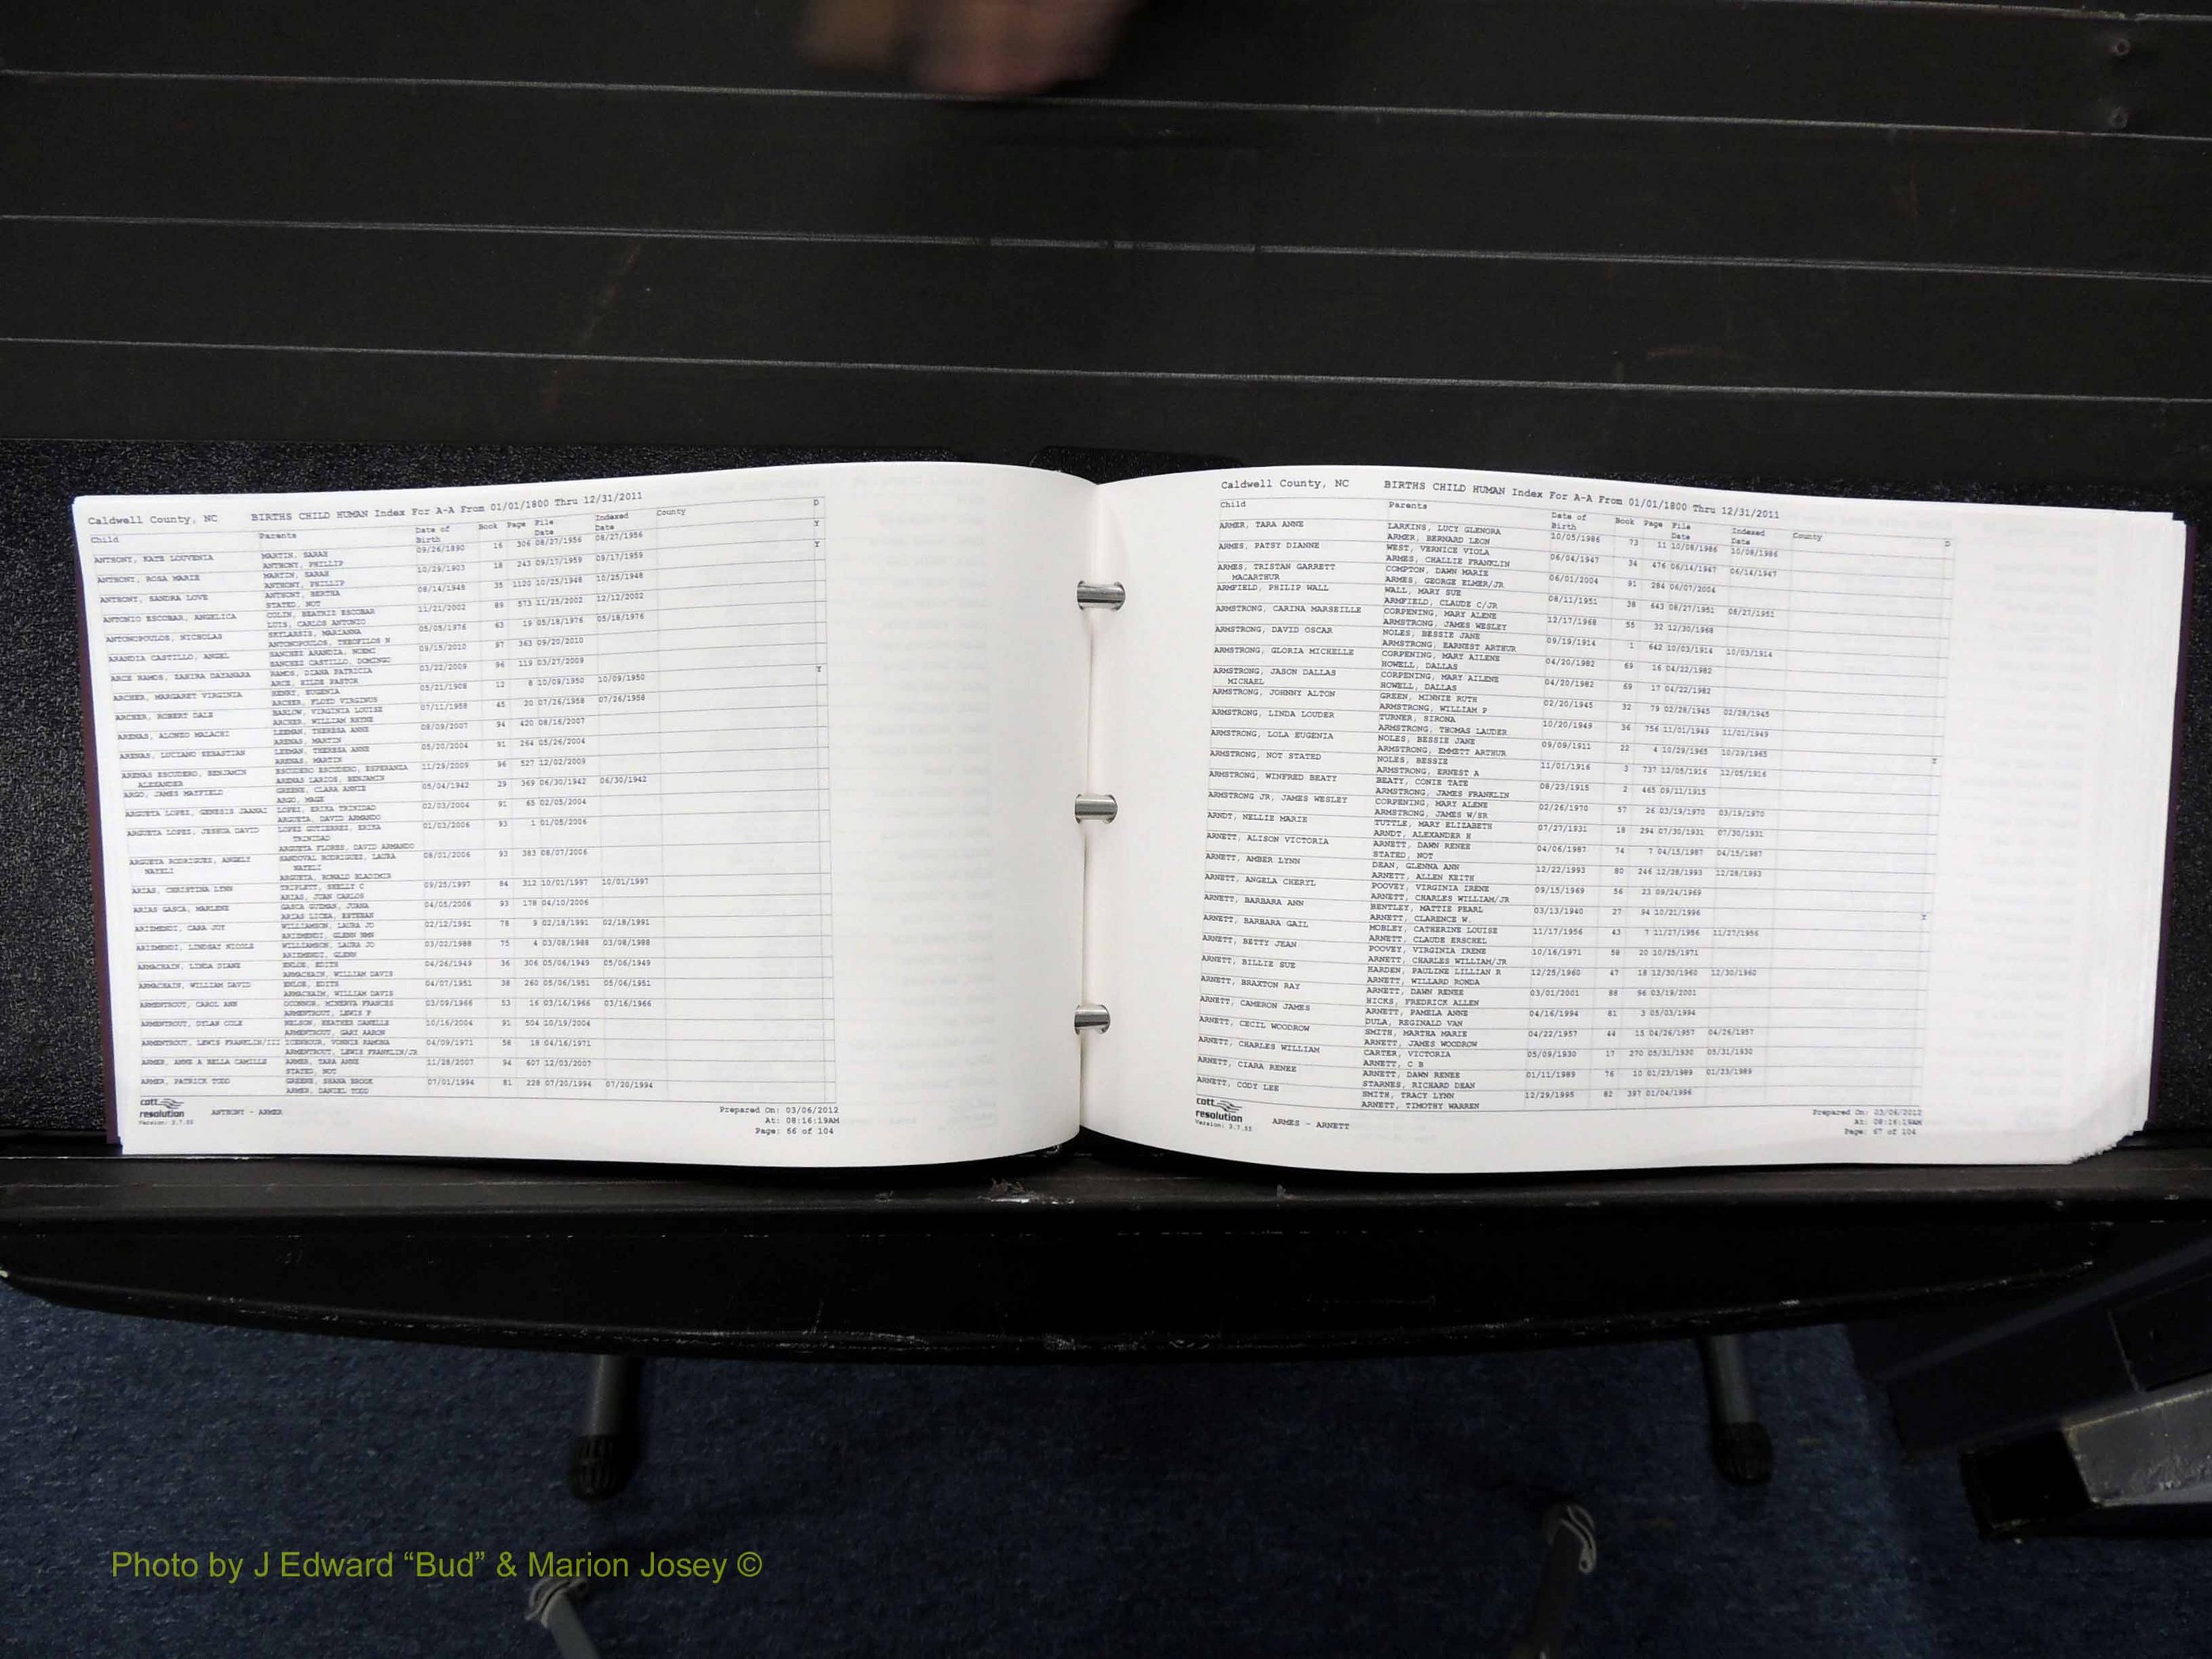 Caldwell County, NC BIRTHS CHILD HUMAN Index For A-A From 01/01/1800 Thru 12/31/2011
Child Parents Date of Birth Book Page File Date Indexed Date County D
ANTHONY, KATE LOUVENIA MARTIN, SARAH 09/26/1890 15 306 08/27/1956 08/27/1956 Y
ANTHONY, PHILLIP
ANTHONY, ROSA MARIE MARTIN, SARAH 10/29/1903 18 243 09/17/1959 09/17/1959 Y
ANTHONY, PHILLIP
ANTHONY, SANDRA LOVE ANTHONY, BERTHA 08/14/1948 35 1120 10/25/1948 10/25/1948
STATED, NOT
ANTONIO ESCOBAR, ANGELICA COLIN, BEATRIZ ESCOBAR 11/21/2002 89 573 11/25/2002 12/12/2002
LUIS, CARLOS ANTONIO
ANTONOPOULOS, NICHOLAS SKYLARSIS, MARIANNA 05/05/1976 63 19 05/18/1976 05/18/1976
ANTONOPOULOS, THEOFILOS N
ARANDIA CASTILLO, ANGEL SANCHEZ ARANDIA, NOEMI 09/15/2010 97 363 09/20/2010
SANCHEZ CASTILLO, DOMINGO
ARCE RAMOS, ZAHIRA DAYANARA RAMOS, DIANA PATRICIA 03/22/2009 96 119 03/27/2009
ARCE, HILDE PASTOR
ARCHER, MARGARET VIRGINIA HENRY, EUGENIA 05/21/1908 12 8 10/09/1950 10/09/1950 Y
ARCHER, FLOYD VIRGINUS
ARCHER, ROBERT DALE BARLOW, VIRGINIA LOUISE 07/11/1958 45 20 07/26/1958 07/26/1958
ARCHER, WILLIAM RHYNE
ARENAS, ALONZO MALACHI LEEMAN, THERESA ANNE 08/09/2007 94 420 08/16/2007
ARENAS, MARTIN
ARENAS, LUCIANO SEBASTIAN LEEMAN, THERESA ANNE 05/20/2004 91 264 05/26/2004
ARENAS, MARTIN
ARENAS ESCUDERO, BENJAMIN ESCUDERO ESCUDERO, ESPERANZA 11/29/2009 96 527 12/02/2009
ALEXANDER ARENAS LARIOS, BENJAMIN
ARGO, JAMES MAYFIELD GREENE, CLARA ANNIE 05/04/1942 29 369 06/30/1942 06/30/1942
ARGO, MAGE
ARGUETA LOPEZ, GENESIS JAANAI LOPEZ, ERIKA TRINIDAD 02/03/2004 91 65 02/05/2004
ARGUETA, DAVID ARMANDO
ARGUETA LOPEZ, JESHUA DAVID LOPEZ GUTIERREZ, ERIKA 01/03/2006 93 1 01/05/2006
TRINIDAD
ARGUETA FLORES, DAVID ARMANDO
ARGUETA RODRIGUEZ, ANGELY SANDOVAL RODRIGUEZ, LAURA 08/01/2006 93 383 08/07/2006
NAYELI NAYELI
ARGUETA, RONALD BLADIMIR
ARIAS, CHRISTINA LYNN TRIPLETT, SHELLY C 09/25/1997 84 312 10/01/1997 10/01/1997
ARIAS, JUAN CARLOS
ARIAS GASCA, MARLENE GASCA GUZMAN, JUANA 04/05/2006 93 178 04/10/2006
ARIAS LICEA, ESTEBAN
ARIEMENDI, CARA JOY WILLIAMSON, LAURA JO 02/12/1991 78 9 02/18/1991 02/18/1991
ARIEMENDI, GLENN NMN
ARIEMENDI, LINDSAY NICOLE WILLIAMSON, LAURA JO 03/02/1988 75 4 03/08/1988 03/08/1988
ARIEMENDI, GLENN
ARMACHAIN, LINDA DIANE ENLOE, EDITH 04/26/1949 36 306 05/06/1949 05/06/1949
ARMACHAIN, WILLIAM DAVIS
ARMACHAIN, WILLIAM DAVID ENLOE, EDITH 04/07/1951 38 260 05/06/1951 05/06/1951
ARMACHAIN, WILLIAM DAVIS
ARMENTROUT, CAROL ANN OCONNOR, MINERVA FRANCES 03/09/1966 53 16 03/16/1966 03/16/1966
ARMENTROUT, LEWIS F
ARMENTROUT, DYLAN COLE NELSON, HEATHER DANELLE 10/16/2004 91 504 10/19/2004
ARMENTROUT, GARY AARON
ARMENTROUT, LEWIS FRANKLIN/III ICENHOUR, VONNIE RAMONA 04/09/1971 58 18 04/16/1971
ARMENTROUT, LEWIS FRANKLIN/JR
ARMER, ANNE A BELLA CAMILLE ARMER, TARA ANNE 11/28/2007 94 607 12/03/2007
STATED, NOT
ARMER, PATRICK TODD GREENE, SHANA BROOK 07/01/1994 81 228 07/20/1994 07/20/1994
ARMER, DANIEL TODD
cott resolution
Version: 3.7.55
ANTHONY - ARMER
Prepared On: 03/06/2012
At: 08:16:19AM
Page: 66 of 104
Caldwell County, NC BIRTHS CHILD HUMAN Index For A-A From 01/01/1800 Thru 12/31/2011
Child Parents Date of Birth Book Page File Date Indexed Date County D
ARMER, TARA ANNE LARKINS, LUCY GLENORA 10/05/1986 73 11 10/08/1986 10/08/1986
ARMER, BERNARD LEON
ARMES, PATSY DIANNE WEST, VERNICE VIOLA 06/04/1947 34 476 06/14/1947 06/14/1947
ARMES, CHALLIE FRANKLIN
ARMES, TRISTAN GARRETT COMPTON, DAWN MARIE 06/01/2004 91 284 06/07/2004
MACARTHUR ARMES, GEORGE ELMER/JR
ARMFIELD, PHILIP WALL WALL, MARY SUE 08/11/1951 38 643 08/27/1951 08/27/1951
ARMFIELD, CLAUDE C/JR
ARMSTRONG, CARINA MARSEILLE CORPENING, MARY ALENE 12/17/1968 55 32 12/30/1968
ARMSTRONG, JAMES WESLEY
ARMSTRONG, DAVID OSCAR NOLES, BESSIE JANE 09/19/1914 1 642 10/03/1914 10/03/1914
ARMSTRONG, EARNEST ARTHUR
ARMSTRONG, GLORIA MICHELLE CORPENING, MARY AILENE 04/20/1982 69 16 04/22/1982
HOWELL, DALLAS
ARMSTRONG, JASON DALLAS CORPENING, MARY AILENE 04/20/1982 69 17 04/22/1982
MICHAEL HOWELL, DALLAS
ARMSTRONG, JOHNNY ALTON GREEN, MINNIE RUTH 02/20/1945 32 79 02/28/1945 02/28/1945
ARMSTRONG, WILLIAM P
ARMSTRONG, LINDA LOUDER TURNER, SIRONA 10/20/1949 36 756 11/01/1949 11/01/1949
ARMSTRONG, THOMAS LAUDER
ARMSTRONG, LOLA EUGENIA NOLES, BESSIE JANE 09/09/1911 22 4 10/29/1965 10/29/1965 Y
ARMSTRONG, EMMETT ARTHUR
ARMSTRONG, NOT STATED NOLES, BESSIE 11/01/1916 3 737 12/05/1916 12/05/1916
ARMSTRONG, ERNEST A
ARMSTRONG, WINFRED BEATY BEATY, CONIE TATE 08/23/1915 2 465 09/11/1915
ARMSTRONG, JAMES FRANKLIN
ARMSTRONG JR, JAMES WESLEY CORPENING, MARY ALENE 02/26/1970 57 26 03/19/1970 03/19/1970
ARMSTRONG, JAMES W/SR
ARNDT, NELLIE MARIE TUTTLE, MARY ELIZABETH 07/27/1931 18 294 07/30/1931 07/30/1931
ARNDT, ALEXANDER H
ARNETT, ALISON VICTORIA ARNETT, DAWN RENEE 04/06/1987 74 7 04/15/1987 04/15/1987
STATED, NOT
ARNETT, AMBER LYNN DEAN, GLENNA ANN 12/22/1993 80 246 12/28/1993 12/28/1993
ARNETT, ALLEN KEITH
ARNETT, ANGELA CHERYL POOVEY, VIRGINIA IRENE 09/15/1969 56 23 09/24/1969
ARNETT, CHARLES WILLIAM/JR
ARNETT, BARBARA ANN BENTLEY, MATTIE PEARL 03/13/1940 27 94 10/21/1996 Y
ARNETT, CLARENCE W.
ARNETT, BARBARA GAIL MOBLEY, CATHERINE LOUISE 11/17/1956 43 7 11/27/1956 11/27/1956
ARNETT, CLAUDE ERSCHEL
ARNETT, BETTY JEAN POOVEY, VIRGINIA IRENE 10/16/1971 58 20 10/25/1971
ARNETT, CHARLES WILLIAM/JR
ARNETT, BILLIE SUE HARDEN, PAULINE LILLIAN R 12/25/1960 47 18 12/30/1960 12/30/1960
ARNETT, WILLARD RONDA
ARNETT, BRAXTON RAY ARNETT, DAWN RENEE 03/01/2001 88 96 03/19/2001
HICKS, FREDRICK ALLEN
ARNETT, CAMERON JAMES ARNETT, PAMELA ANNE 04/16/1994 81 3 05/03/1994
DULA, REGINALD VAN
ARNETT, CECIL WOODROW SMITH, MARTHA MARIE 04/22/1957 44 15 04/26/1957 04/26/1957
ARNETT, JAMES WOODROW
ARNETT, CHARLES WILLIAM CARTER, VICTORIA 05/09/1930 17 270 05/31/1930 05/31/1930
ARNETT, C B
ARNETT, CIARA RENEE ARNETT, DAWN RENEE 01/11/1989 76 10 01/23/1989 01/23/1989
STARNES, RICHARD DEAN
ARNETT, CODY LEE SMITH, TRACY LYNN 12/29/1995 82 397 01/04/1996
ARNETT, TIMOTHY WARREN
cott resolution
Version: 3.7.55
ARMES - ARNETT
Prepared On: 03/06/2012
At: 08:16:19AM
Page: 67 of 104
Photo by J Edward “Bud” & Marion Josey ©